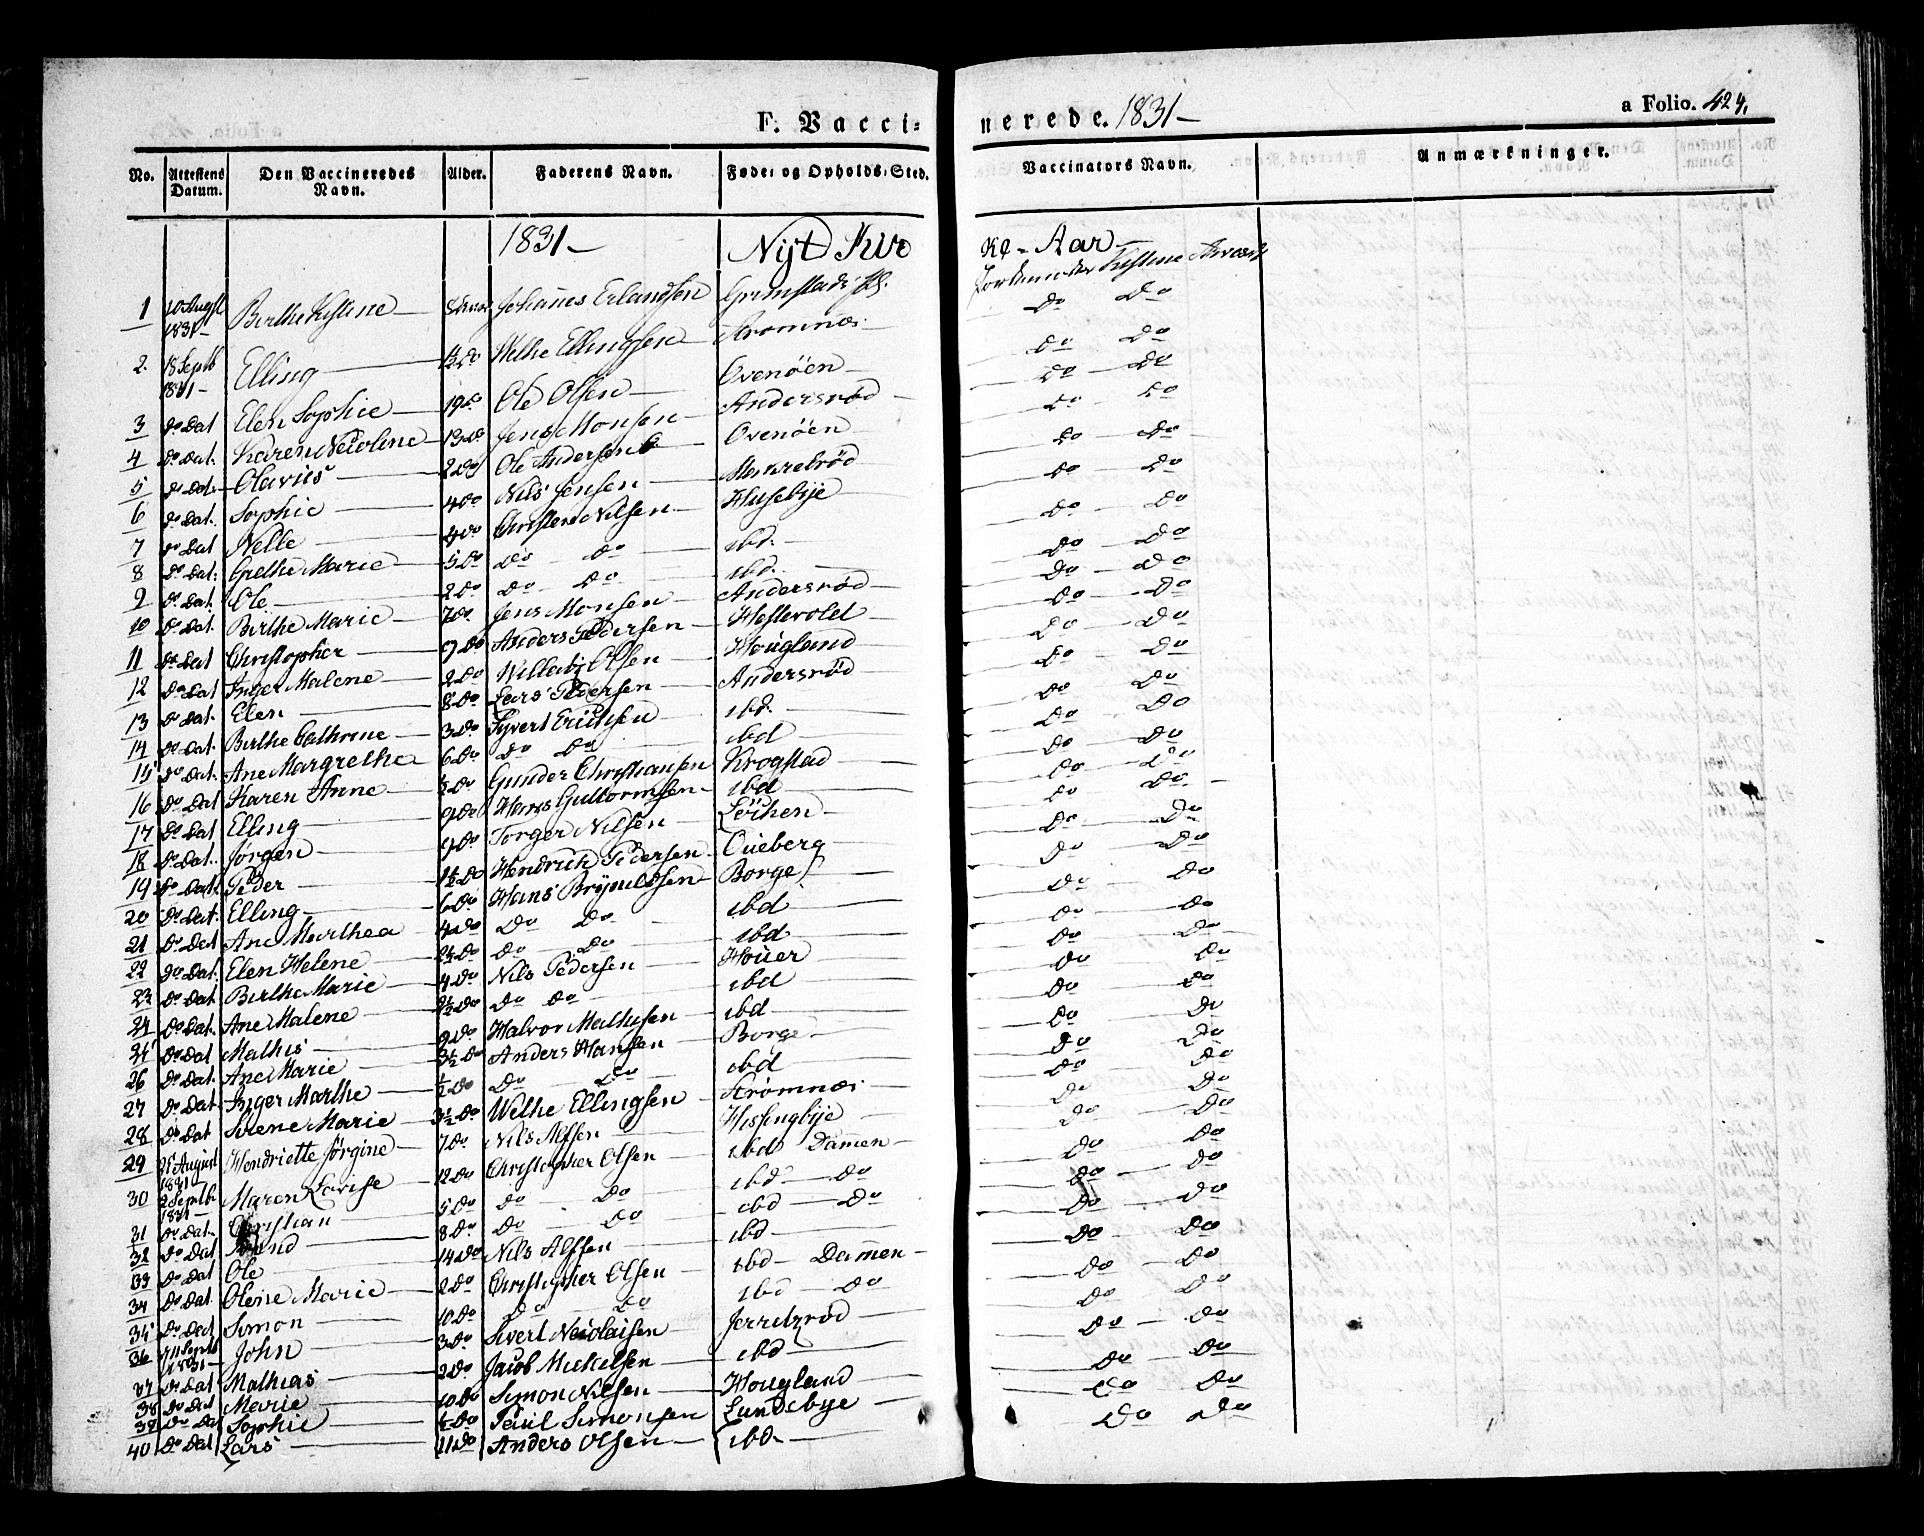 F. Vacci= nerede. 1831— a Folio. 424.
No. | Attestens Datum. | Den Vaccineredes Navn. | Alder. | Faderens Navn. | Føde= og Opholds=Sted. | Vaccinators Navn. | Anmærkninger.
1831— Nyt Kir ke-Aar—
1 10 August 1831— Birthe Kistine Johanes Erlandsen Grimstads Jordmoder Kistine
2. 18 Septb 1831— Elling — 1½ do Welhe Ellingsen Strømnæs. do do
3 do Dat Elen Sophie — 19 do Ole Olsen — Ovenøen — do do
4 do Dat. Karen Necoline — 13 do Jens Monsen — Andersrød — do do
5 do Dat. Olavus — 2 do Ole Andersen Ovenøen — do do
6 do Dat. Sophie — 4 do Nils Jensen — do do
7 do Dat Nelle — do Christen Nilsen — Husebye do do
8 do Dat. Grethe Marie — 5 do do do — ibd. do do
9 do Dat. Ole — 2 do do do — ibd. — do do
10 do Dat. Birthe Marie — 7 do Jens Monsen — Andersrød — do do
11 do Dat Christopher — 9 do Anders Pedersen — Hestevold — do do
12 do Dat Inger Malene — 2 do Olsen — Houglund do do
13 do Dat. Elen — 8 do Lars Pedersen — Andersrød do do
14 do Dat. Birthe Cathrine — 3 do Syvert Ericksen ibd. do do
15 do Dat. Ane Margrethe 6 do do do ibd do do
16 do Dat Karen Anne — ½ do Gunder Christiansen Krogstad do do
17 do Dat Elling — 9 do Hans Guttormsen — ibd do do
18 do Dat. Jørgen — do Torger Nilsen — do do
19 do Dat. Peder — 1½ do Hendrich Pedersen — Oueberg do do
20 do Dat. Elling — 6 do Hans Brynildsen Borge do do
21 do Dat Ane Marthea 4 do do do ibd do do
22 do Dat. Elen Helene — 2½ do do do ibd do do
23 do Dat. Birthe Marie — 4 do Nils Pedersen Houer do do
24 do Dat. Ane Malene — 2½ do do do — ibd do do
25 do Dat Mathis — 9 do Halvor Mathisen — ibd do do
26 do Dat. Ane Marie — 3½ do Anders Hansen Borge do do
27 do Dat. Inger Marthe — ½ do do do ibd do do
28 do Dat Sirene Marie — 3½ do Welhe Ellingsen — Strømnæs. do do
29 25 August 1831 Hendriette Jørgine — 7 do Nils Alfsen — Hissingbye do do
30 2 Septb 1831— Maren Lovise — 12 do Christopher Olsen — ibd Damen — do do
31 do Dat. Christian — 5 do do do ibd — do do do
32 do Dat — 8 do do do ibd — do do do
33 do Dat Ole — 14 do Nils Alfsen — ibd — do do
34 do Dat. Olene Marie — 2 do Christopher Olsen — ibd — Dammen — do do
35 do Dat Simon — 10 do do do ibd — do do do
36 11 Septb 1831— John — 3 do Sivert Nicolaisen — Jerretzrød — do do
37 do Dat Mathias — 2 do Jacob Mickelsen — ibd — do do
38 do Dat Marie — 10 do Simon Nilsen — Hougland — do do
39 do Dat Sophie — ½ do Paul Simonsen — Lundebye — do do
40 do Dat Lars — 11 do Anders Olsen — ibd. — do do